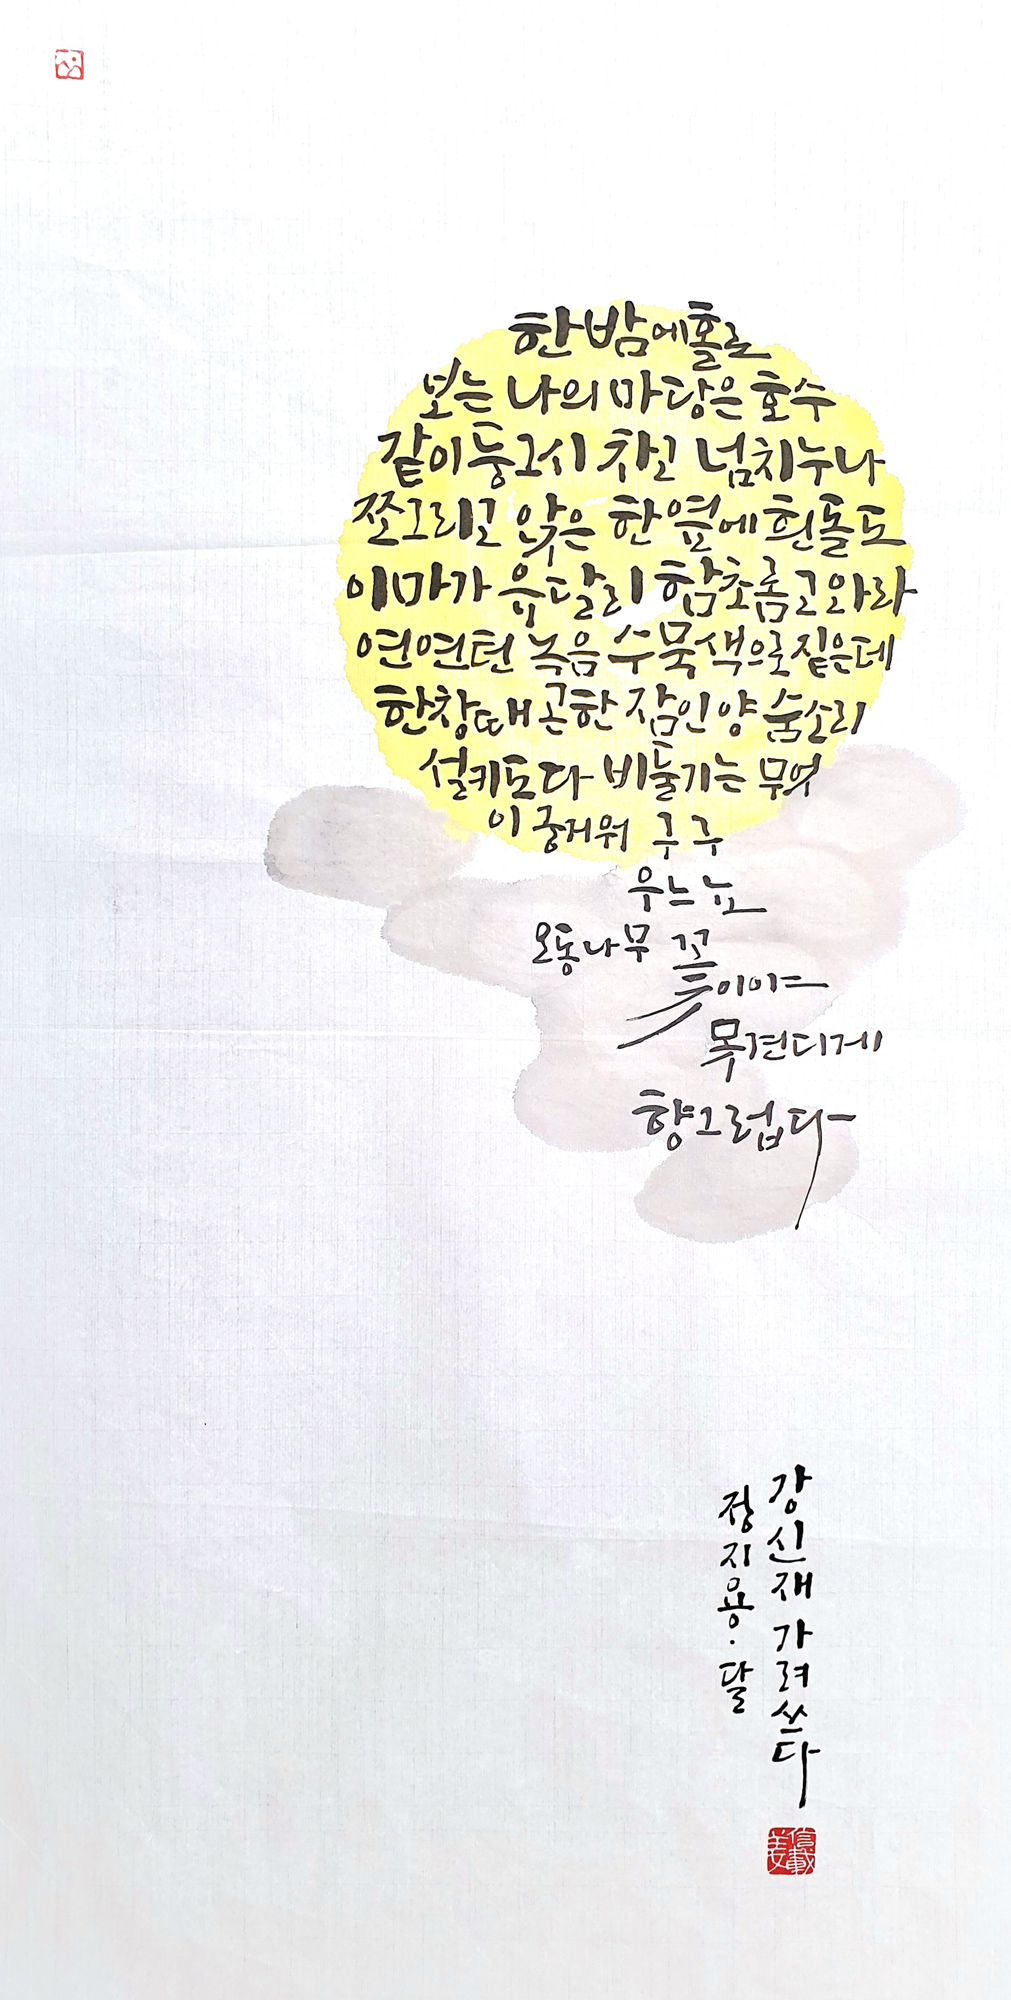 한밤에홀로
보는 나의 마당은 호수
같이둥그시 차고 넘치누나
쪼그리고 앉은 한옆에 흰돌도
이마가 유달리 함초롬고와라
연연턴 녹음 수묵색으로짙은데
한창때 곤한 잠인양 숨소리
설키도다 비둘기는 무엇
이 궁거워 구구
우느뇨
오동나무 꽃
이야
못견디게
향그럽다
정지용·달
강신재가려쓰다
姜信載